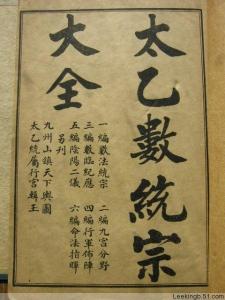 太乙數統宗
大全
一編數法統宗 二編九宮分野
三編數臨紀應 四編行軍佈陣
五編陰陽二議 六編命法指暉
另刊
九州山鎮天下輿圖
太乙統屬行宮輯王
Leekingb.51.com